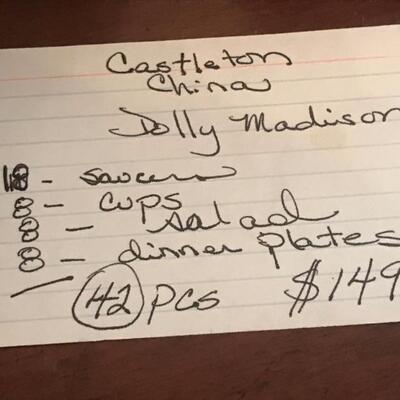 Castleton
China
Dolly Madison
18 - saucers
8 - cups
8 - salad
8 - dinner plates
42 pcs $149